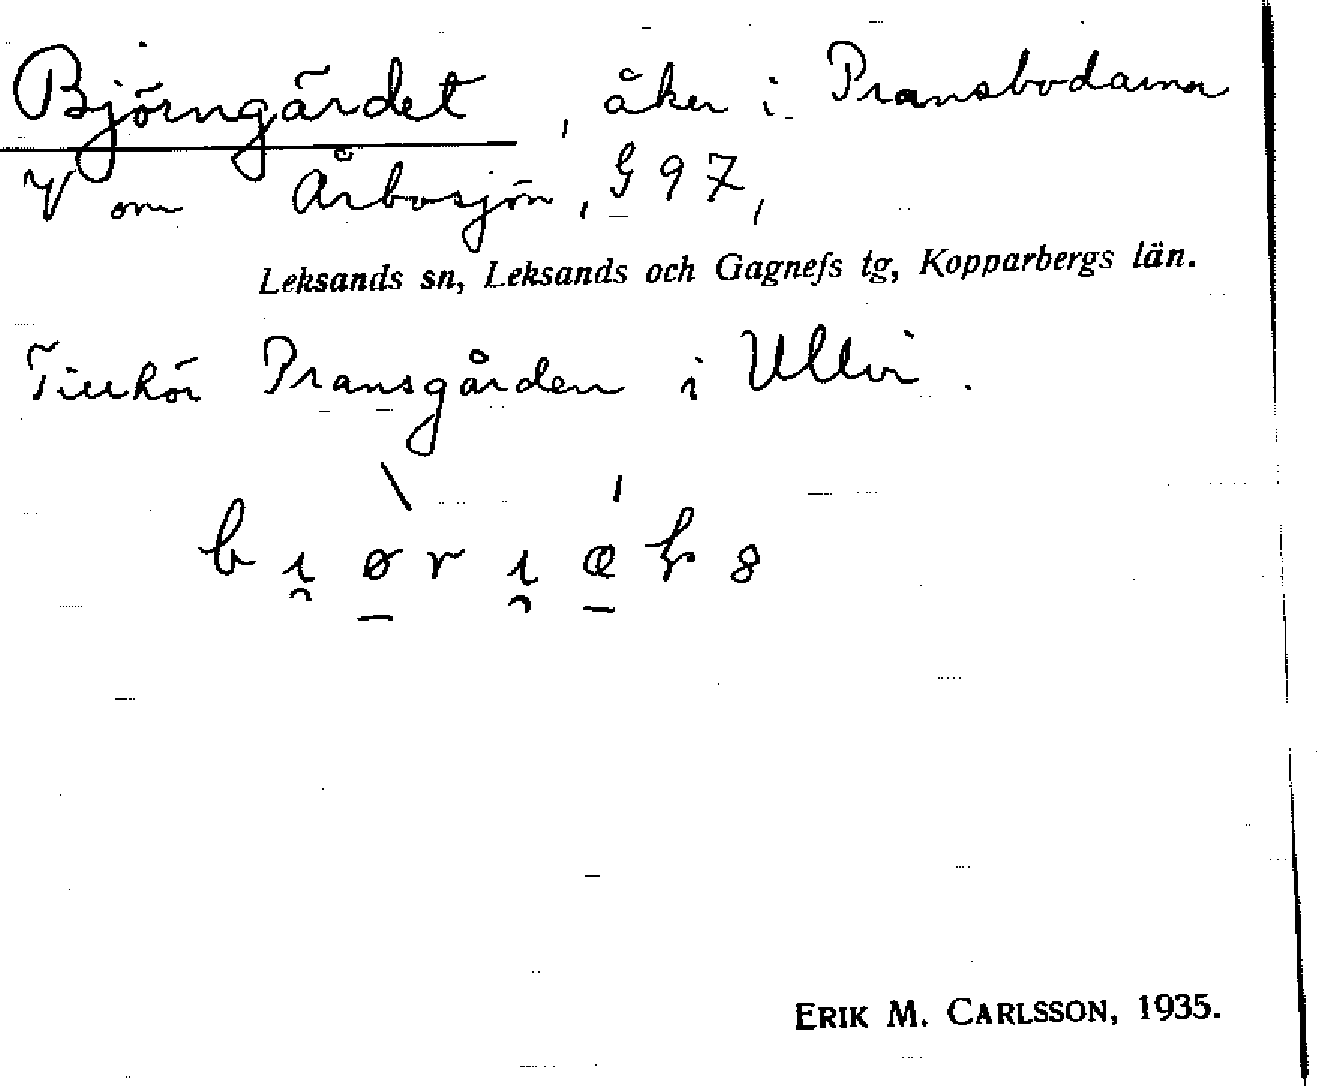 Björngärdet, åker i Pransbodarna
V om Årbosjön, G 97,
Leksands sn, Leksands och Gagnefs tg, Kopparbergs län.
Tillhör Pransgården i Ullvi.
ERIK M. CARLSSON, 1935.